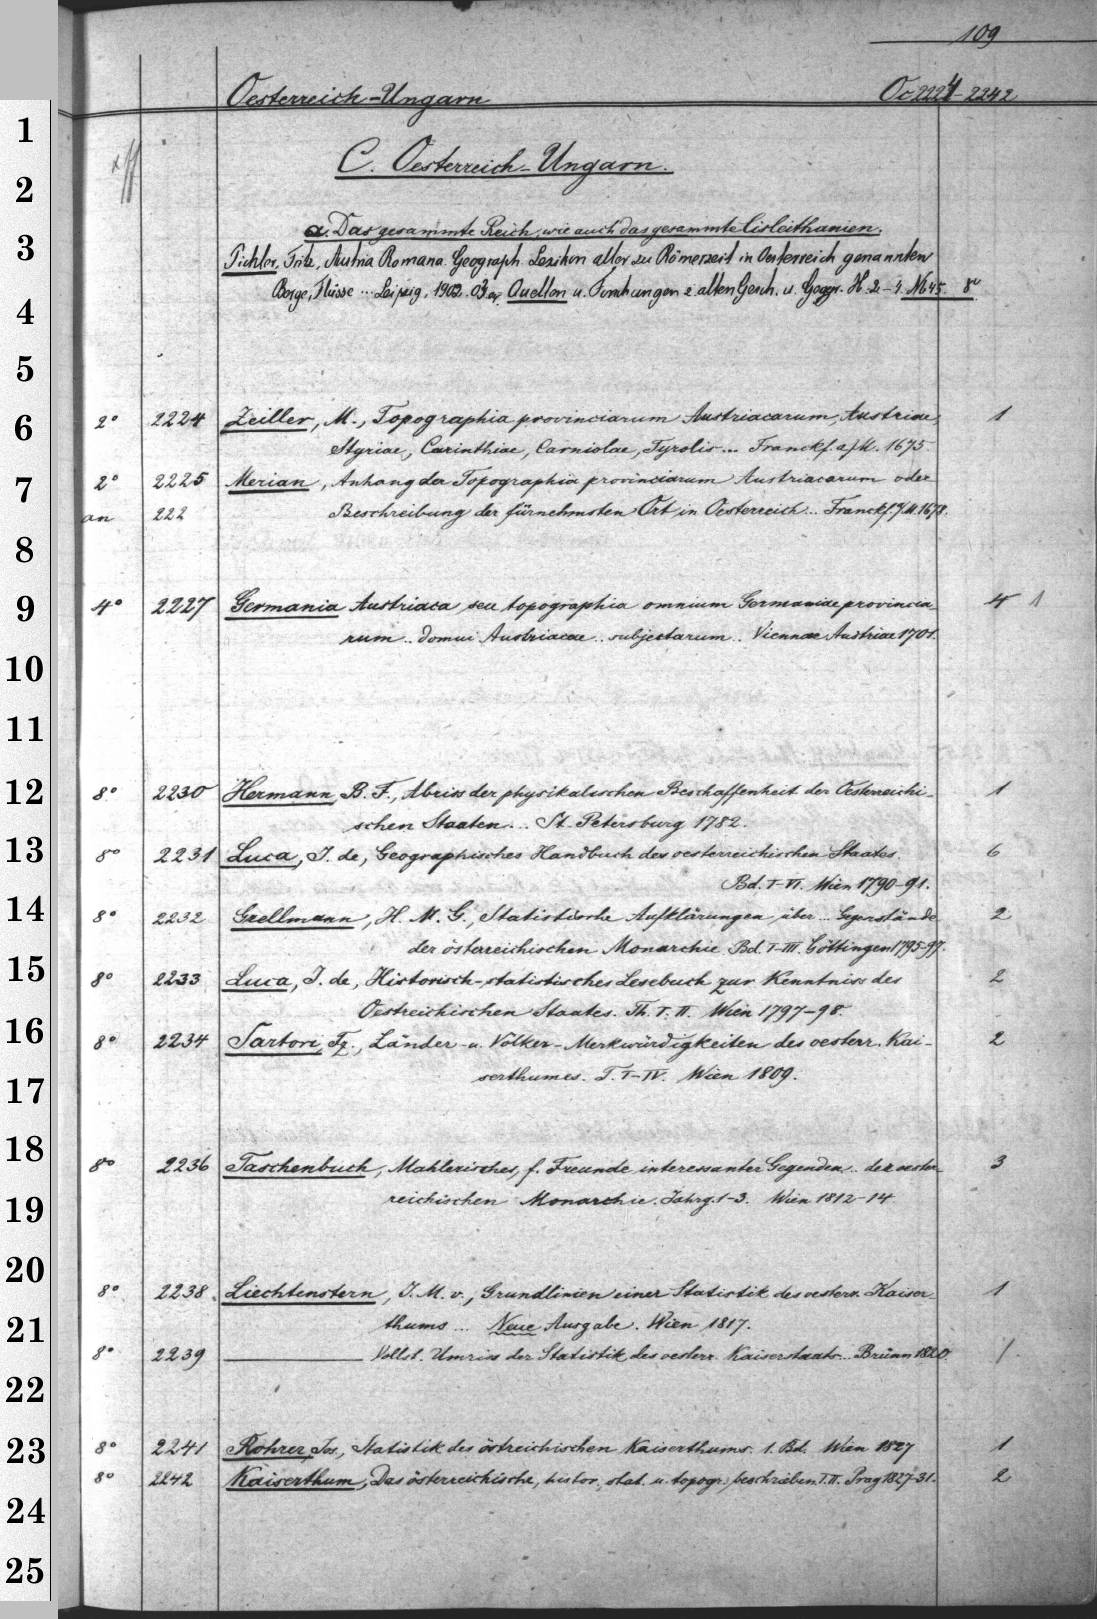 109
Oesterreich-Ungarn Oc 2224-2242
C. Oesterreich-Ungarn.
a. Das gesammte Reich, wie auch das gesammte Cisleithanien.
Pichler, Fritz, Austria Romana. Geograph. Lexikon aller zu Römerzeit in Oesterreich genannten
Berge, Flüsse ... Leipzig, 1902. 03 Quellen u. Forschungen z. alten Gesch. u. Geogr. H. 2-4. 8°
2° 2224 Zeiller, M., Topographia provinciarum Austriacarum, Austriae, 1
Styriae, Carinthiae, Carniolae, Tyrolis ... Franckf. a/M. 1675.
2° 2225 Merian, Anhang der Topographia provinciarum Austriacarum oder
an 222 Beschreibung der fürnehmsten Ort in Oesterreich ... Franckf. a/M. 1678.
4° 2227 Germania Austriaca seu topographia omnium Germaniae provincia- 4 1
rum .. domui Austriacae .. subjectarum .. Viennae Austriae 1701.
8° 2230 Hermann, B. F., Abriss der physikalischen Beschaffenheit der Oesterreichi- 1
schen Staaten ... St. Petersburg 1782.
8° 2231 Luca, I. de, Geographisches Handbuch des oesterreichischen Staates. 6
Bd. I-VI. Wien 1790-91.
8° 2232 Grellmann, H. M. G., Statistische Aufklärungen über ... Gegenstände 2
der österreichischen Monarchie. Bd. I-III. Göttingen 1795-97.
8° 2233 Luca, I. de, Historisch-statistisches Lesebuch zur Kenntniss des 2
Oestreichischen Staates. Th. I. II. Wien 1797-98.
8° 2234 Sartori, Fz., Länder- u. Völker-Merkwürdigkeiten des oesterr. Kai- 2
serthumes. T. I-IV. Wien 1809.
8° 2236 Taschenbuch, Mahlerisches, f. Freunde interessanter Gegenden .. der oester- 3
reichischen Monarchie. Jahrg. 1-3. Wien 1812-14
8° 2238. Liechtenstern, J. M. v., Grundlinien einer Statistik des oesterr. Kaiser- 1
thums ... Neue Ausgabe. Wien 1817.
8° 2239 ——— Vollst. Umriss der Statistik des oesterr. Kaiserstaats ... Brünn 1820. 1
8° 2241 Rohrer, Jos., Statistik des östreichischen Kaiserthums. 1. Bd. Wien 1827 1
8° 2242 Kaiserthum, Das österreichische, histor., stat. u. topogr. beschrieben. T. II. Prag 1827-31. 2
1
2
3
4
5
6
7
8
9
10
11
12
13
14
15
16
17
18
19
20
21
22
23
24
25